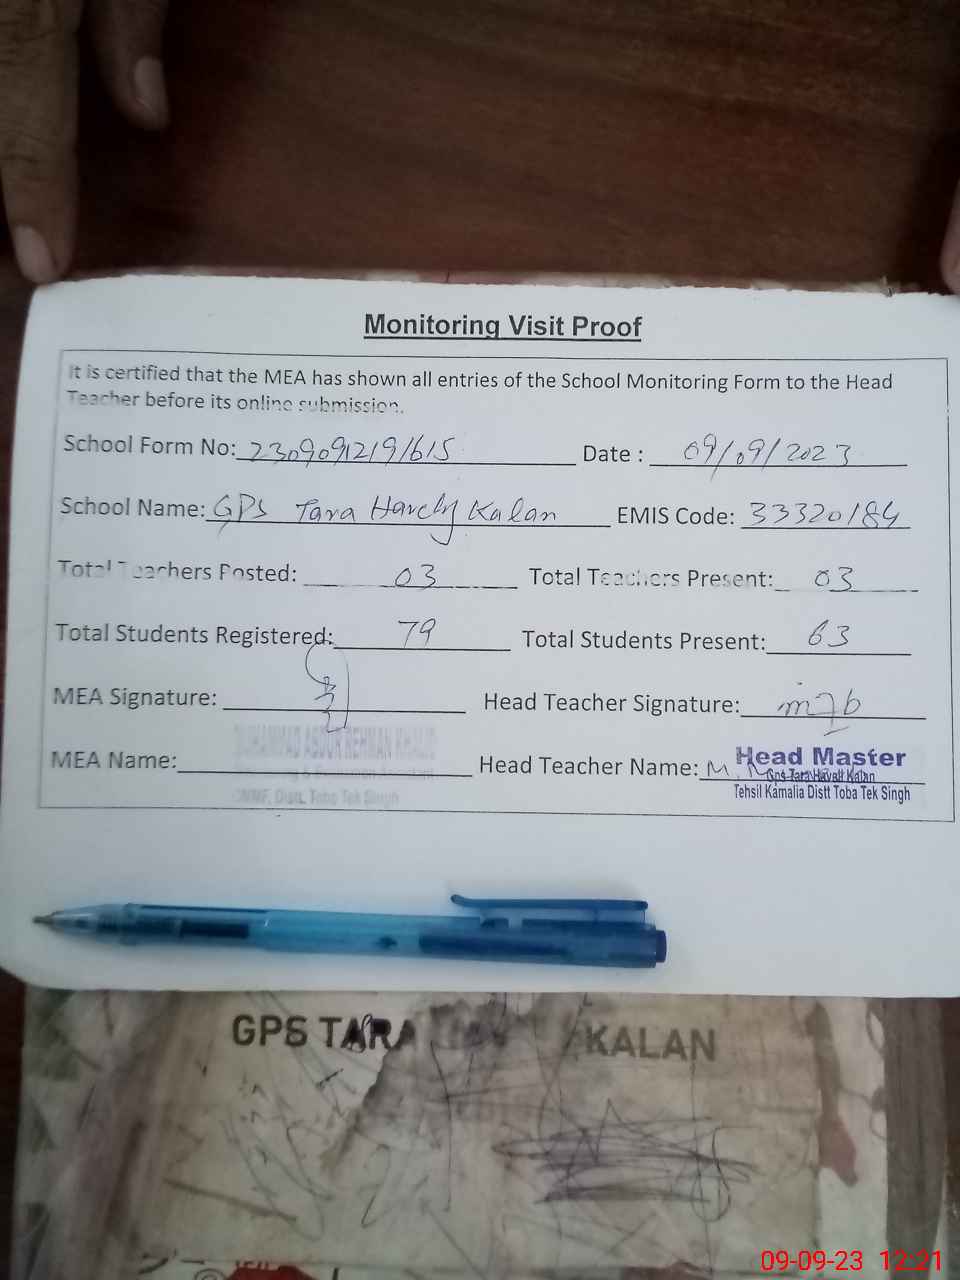 Monitoring Visit Proof
It is certified that the MEA has shown all entries of the School Monitoring Form to the Head
Teacher before its online submission.
School Form No: 23090912191615 Date : 09/09/2023
School Name: GPS Tara Kalan EMIS Code: 33320184
Total Teachers Posted: 03 Total Teachers Present: 03
Total Students Registered: 79 Total Students Present: 63
MEA Signature: Head Teacher Signature:
MEA Name: MUHAMMAD ABDUR REHMAN KHALID Head Teacher Name: M. Head Master
Gps Tara Kalan
Distt. Toba Tek Singh Tehsil Kamalia Distt Toba Tek Singh
GPS TARA KALAN
09-09-23 12:21